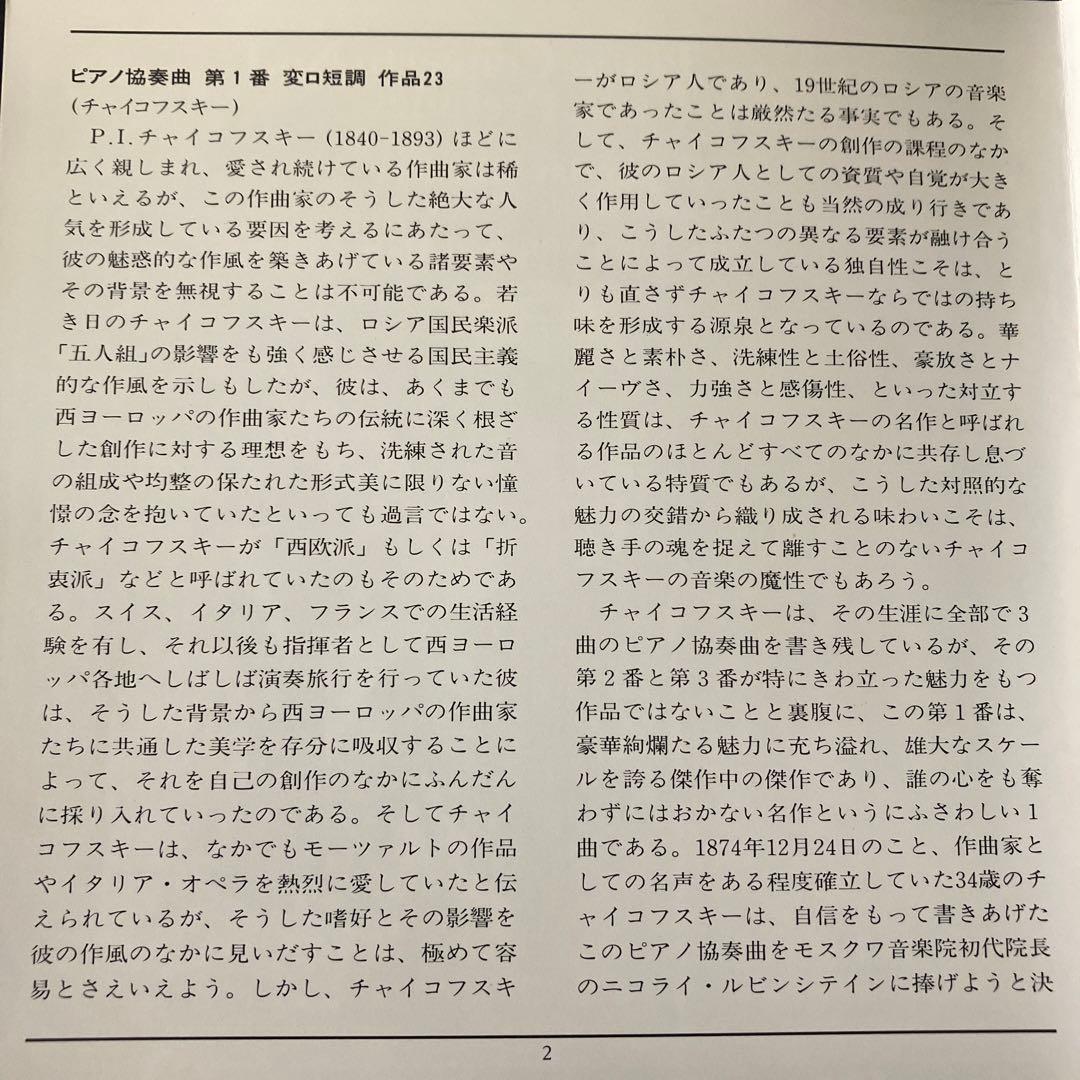 ピアノ協奏曲 第1番 変ロ短調 作品23
(チャイコフスキー)
P.I.チャイコフスキー(1840-1893)ほどに
広く親しまれ、愛され続けている作曲家は稀
といえるが、この作曲家のそうした絶大な人
気を形成している要因を考えるにあたって、
彼の魅惑的な作風を築きあげている諸要素や
その背景を無視することは不可能である。若
き日のチャイコフスキーは、ロシア国民楽派
「五人組」の影響をも強く感じさせる国民主義
的な作風を示しもしたが、彼は、あくまでも
西ヨーロッパの作曲家たちの伝統に深く根ざ
した創作に対する理想をもち、洗練された音
の組成や均整の保たれた形式美に限りない憧
憬の念を抱いていたといっても過言ではない。
チャイコフスキーが「西欧派」もしくは「折
衷派」などと呼ばれていたのもそのためであ
る。スイス、イタリア、フランスでの生活経
験を有し、それ以後も指揮者として西ヨーロ
ッパ各地へしばしば演奏旅行を行っていた彼
は、そうした背景から西ヨーロッパの作曲家
たちに共通した美学を存分に吸収することに
よって、それを自己の創作のなかにふんだん
に採り入れていったのである。そしてチャイ
コフスキーは、なかでもモーツァルトの作品
やイタリア・オペラを熱烈に愛していたと伝
えられているが、そうした嗜好とその影響を
彼の作風のなかに見いだすことは、極めて容
易とさえいえよう。しかし、チャイコフスキ
ーがロシア人であり、19世紀のロシアの音楽
家であったことは厳然たる事実でもある。そ
して、チャイコフスキーの創作の課程のなか
で、彼のロシア人としての資質や自覚が大き
く作用していったことも当然の成り行きであ
り、こうしたふたつの異なる要素が融け合う
ことによって成立している独自性こそは、と
りも直さずチャイコフスキーならではの持ち
味を形成する源泉となっているのである。華
麗さと素朴さ、洗練性と土俗性、豪放さとナ
イーヴさ、力強さと感傷性、といった対立す
る性質は、チャイコフスキーの名作と呼ばれ
る作品のほとんどすべてのなかに共存し息づ
いている特質でもあるが、こうした対照的な
魅力の交錯から織り成される味わいこそは、
聴き手の魂を捉えて離すことのないチャイコ
フスキーの音楽の魔性でもあろう。
チャイコフスキーは、その生涯に全部で3
曲のピアノ協奏曲を書き残しているが、その
第2番と第3番が特にきわ立った魅力をもつ
作品ではないことと裏腹に、この第1番は、
豪華絢爛たる魅力に充ち溢れ、雄大なスケー
ルを誇る傑作中の傑作であり、誰の心をも奪
わずにはおかない名作というにふさわしい1
曲である。1874年12月24日のこと、作曲家と
しての名声をある程度確立していた34歳のチ
ャイコフスキーは、自信をもって書きあげた
このピアノ協奏曲をモスクワ音楽院初代院長
のニコライ・ルビンシテインに捧げようと決
2